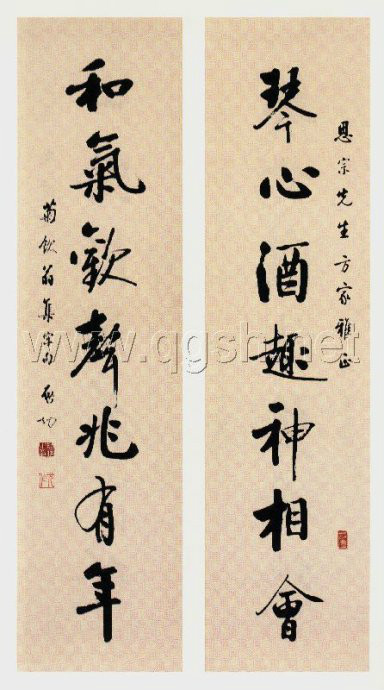 恩宗先生方家雅正
琴心酒趣神相會
和氣歡聲兆有年
菊飲翁集宋句 啟功
www.qgsh.net